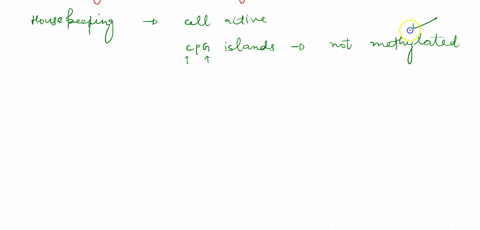 Housekeeping → cell active
CpG islands → not methylated